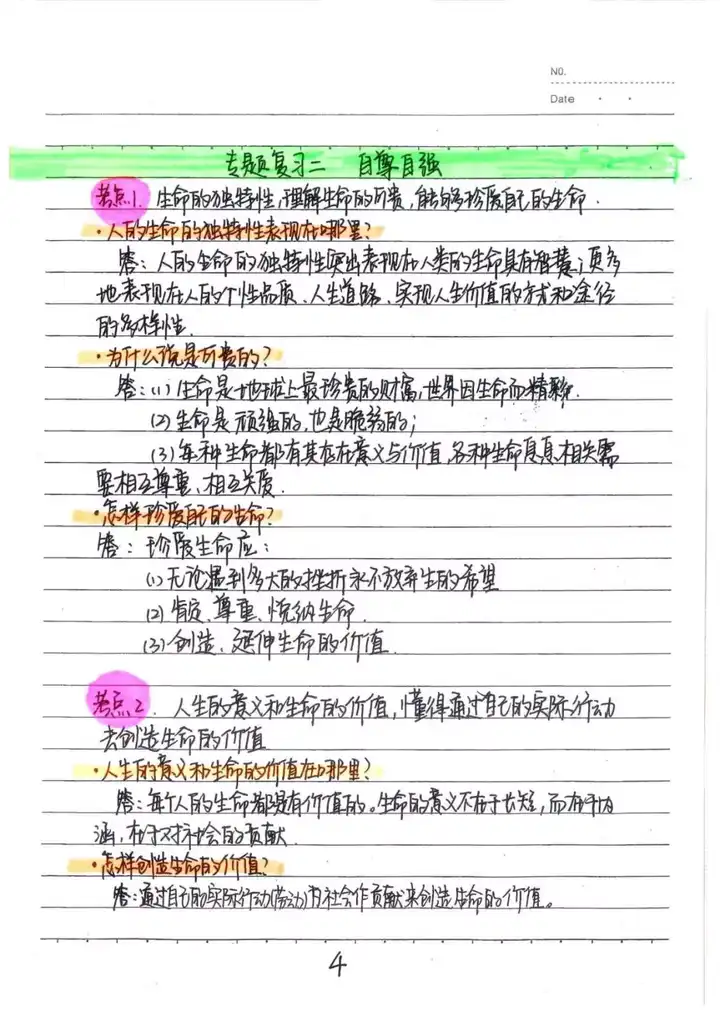 NO.
Date
专题复习二 自尊自强
考点1. 生命的独特性,理解生命的可贵,能够珍爱自己的生命.
·人的生命的独特性表现在哪里?
答:人的生命的独特性突出表现在人类的生命具有智慧;更多
地表现在人的个性品质、人生道路、实现人生价值的方式和途径
的多样性.
·为什么说是可贵的?
答:(1)生命是地球上最珍贵的财富,世界因生命而精彩.
(2)生命是顽强的,也是脆弱的;
(3)每种生命都有其存在意义与价值,各种生命息息相关需
要相互尊重、相互关爱.
·怎样珍爱自己的生命?
答:珍爱生命应:
(1)无论遇到多大的挫折永不放弃生的希望
(2)肯定、尊重、悦纳生命.
(3)创造、延伸生命的价值.
考点2. 人生的意义和生命的价值,懂得通过自己的实际行动
去创造生命的价值
·人生的意义和生命的价值在哪里?
答:每个人的生命都是有价值的。生命的意义不在于长短,而在于内
涵,在于对社会的贡献.
·怎样创造生命的价值?
答:通过自己的实际行动(劳动)为社会作贡献来创造生命的价值。
4